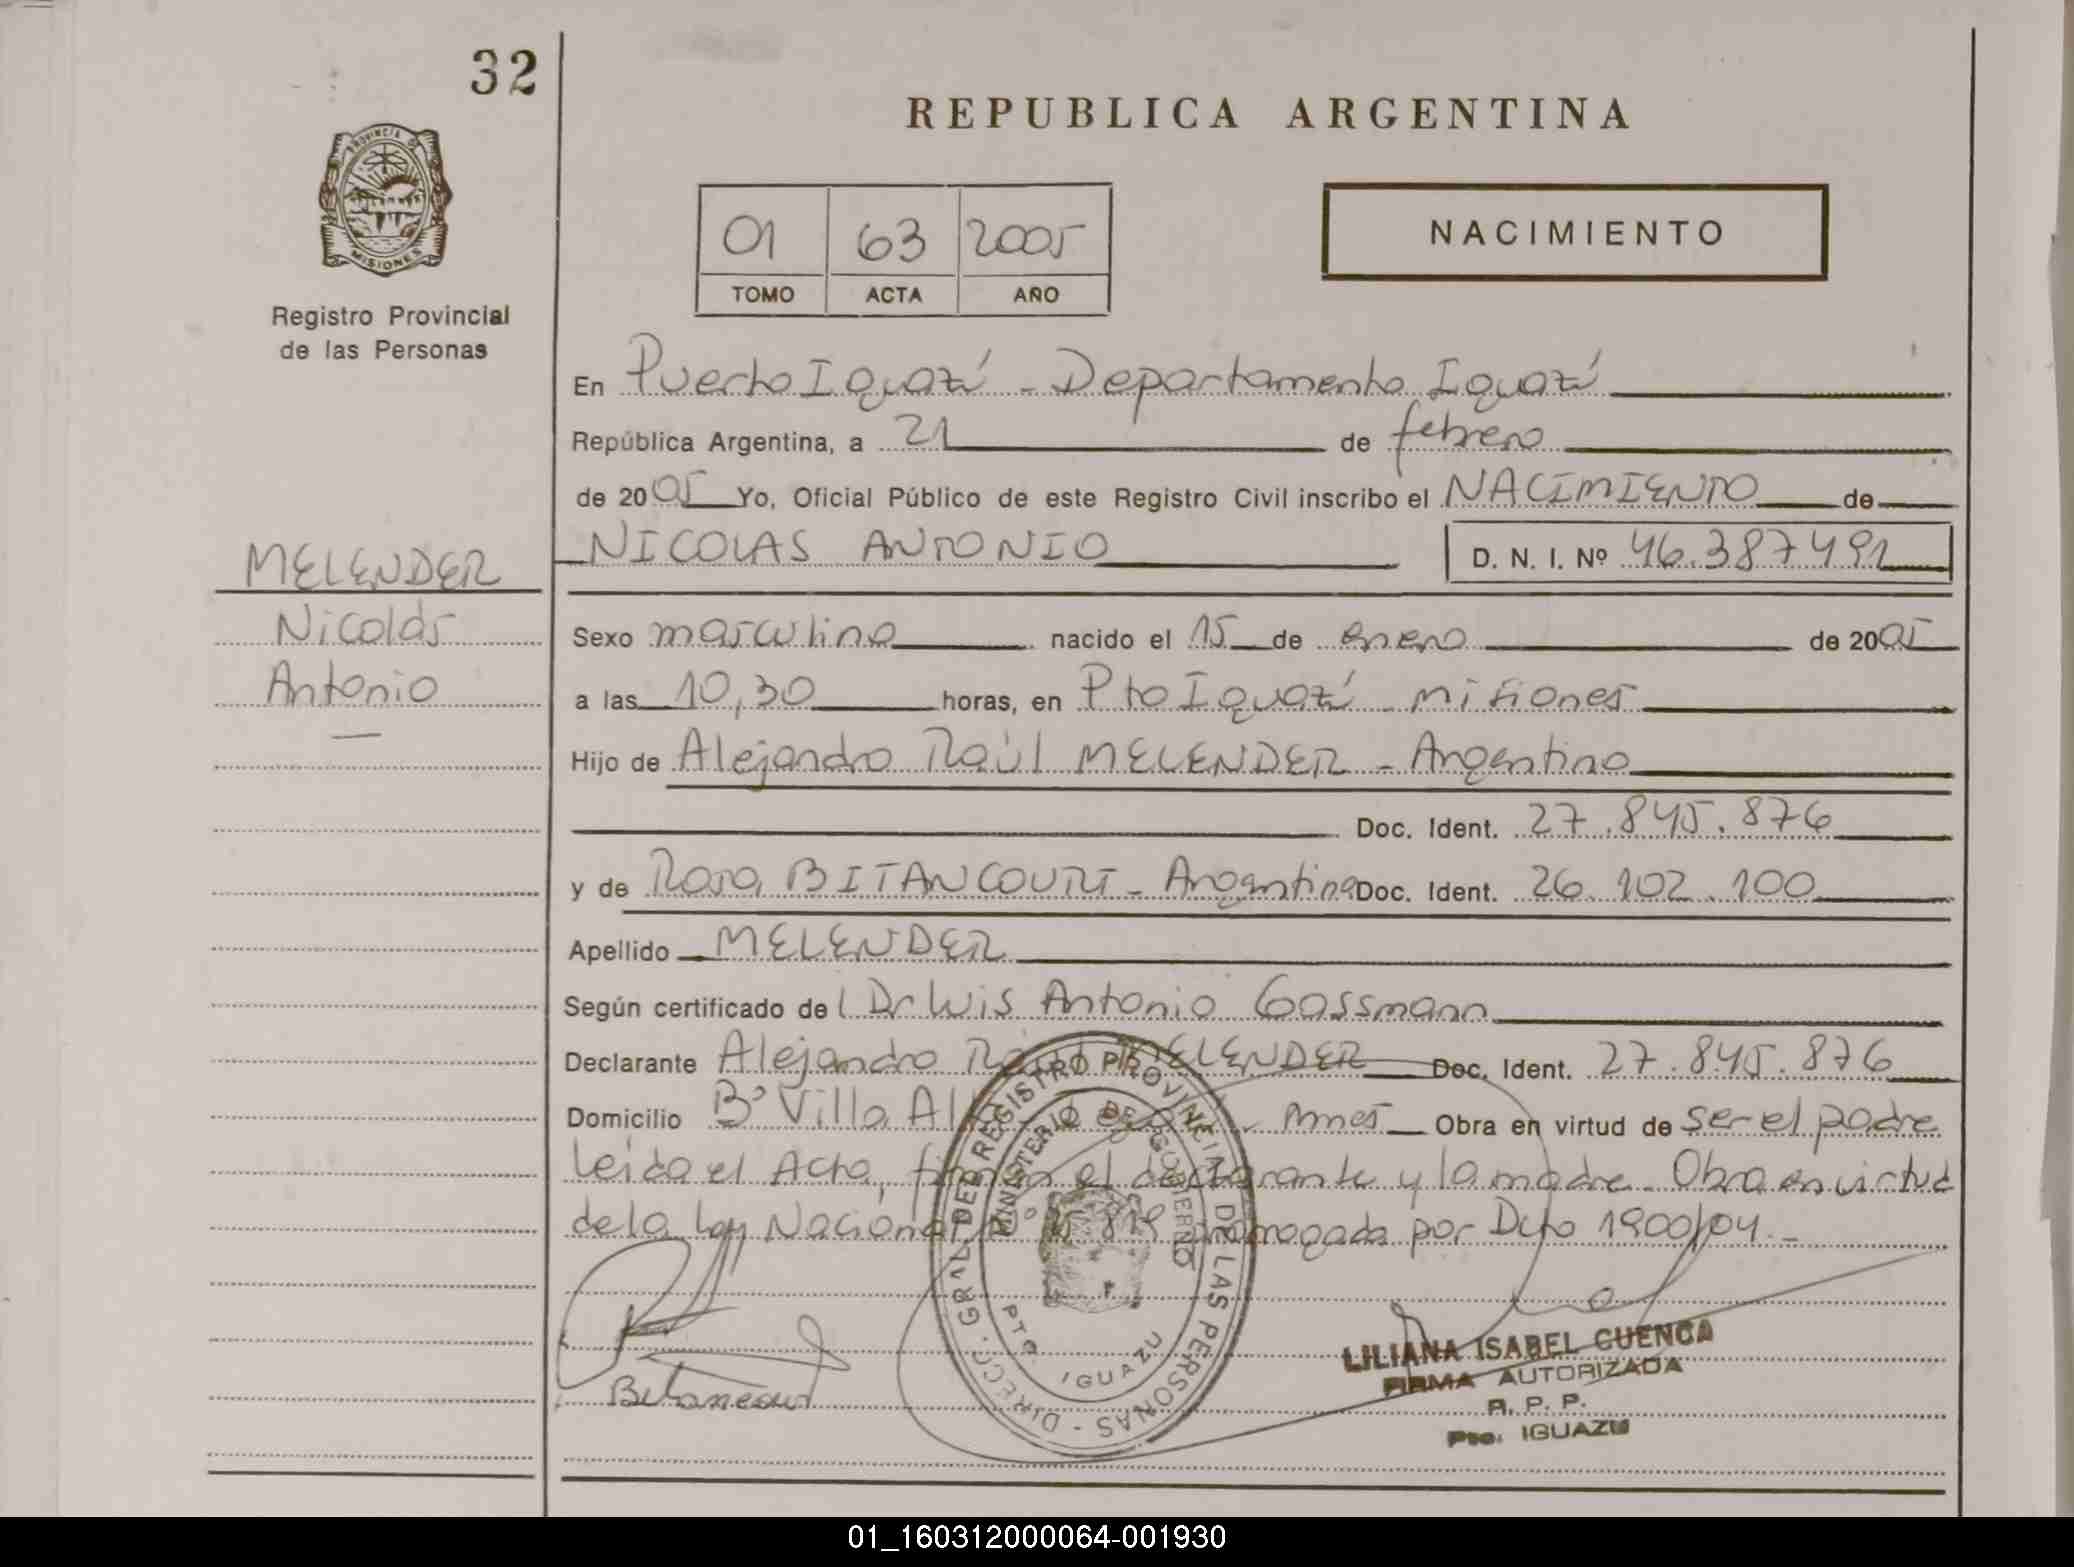 32
REPUBLICA ARGENTINA
PROVINCIA DE
MISIONES
Registro Provincial
de las Personas
01 63 2005
TOMO ACTA AÑO
NACIMIENTO
En Puerto Iguazú - Departamento Iguazú
República Argentina, a 21 de febrero
de 2005 Yo, Oficial Público de este Registro Civil inscribo el NACIMIENTO de
NICOLAS ANTONIO D. N. I. Nº 46.387491
MELENDER
Nicolás
Antonio
Sexo masculino nacido el 15 de enero de 2005
a las 10,30 horas, en Pto Iguazú - Misiones
Hijo de Alejandro Raúl MELENDER - Argentino
Doc. Ident. 27.845.876
y de Rosa BITANCOURT - Argentina Doc. Ident. 26.102.100
Apellido MELENDER
Según certificado del Dr Luis Antonio Gassmann
Declarante Alejandro Raúl MELENDER Doc. Ident. 27.845.876
Domicilio Bº Villa Mnes Obra en virtud de ser el padre
Leida el Acta, firman el declarante y la madre. Obra en virtud
de la Ley Nacional prorrogada por Dcto 1900/04.-
DIRECC. GRAL DEL REGISTRO PROVINCIAL DE LAS PERSONAS -
MINISTERIO DE GOBIERNO
PTO. IGUAZU
LILIANA ISABEL CUENCA
FIRMA AUTORIZADA
R. P. P.
Pto. IGUAZU
01_160312000064-001930